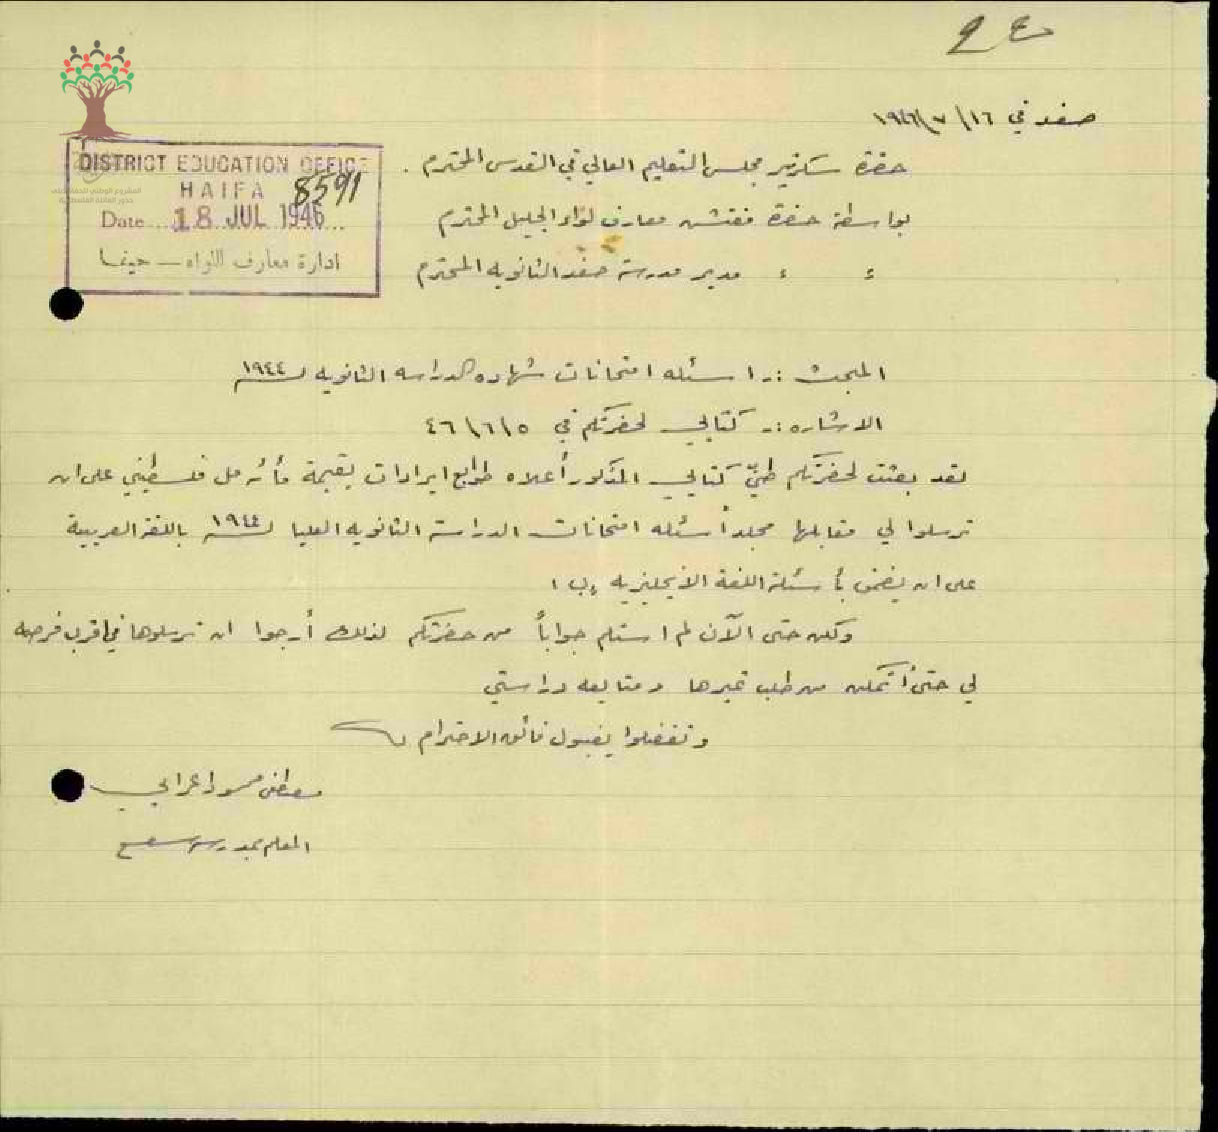 صفد في ١٦/٧/١٩٤٦
حضرة سكرتير مجلس التعليم العالي في القدس المحترم .
بواسطة حضرة مفتش معارف لواء الجليل المحترم
ء ء مدير مدرسة صفد الثانويه المحترم
DISTRICT EDUCATION OFFICE
HAIFA
8591
Date 18 JUL 1946
ادارة معارف اللواء - حيفا
المبحث :- اسئله امتحانات شهاده الدراسه الثانويه لسنة ١٩٤٤
الاشاره :- كتابي لحضرتكم في ٤٦/٦/٥
لقد بعثت لحضرتكم طيّ كتابي المذكور أعلاه طوابع ايرادات بقيمة مأئه مل فلسطيني على ان
ترسلوا لي مقابلها مجلد أسئله امتحانات الدراسة الثانويه العليا لسنة ١٩٤٤ باللغة العربية
على ان يضمن بأسئلة اللغة الانجليزيه
ولكن حتى الآن لم استلم جواباً من حضرتكم لذلك أرجوا ان ترسلوها في اقرب فرصه
لي حتى أتمكن من طلب غيرها ومتابعه دراستي
وتفضلوا بقبول فائق الاحترام
مصطفى محمود اعرابي
المعلم بمدرسة سعسع